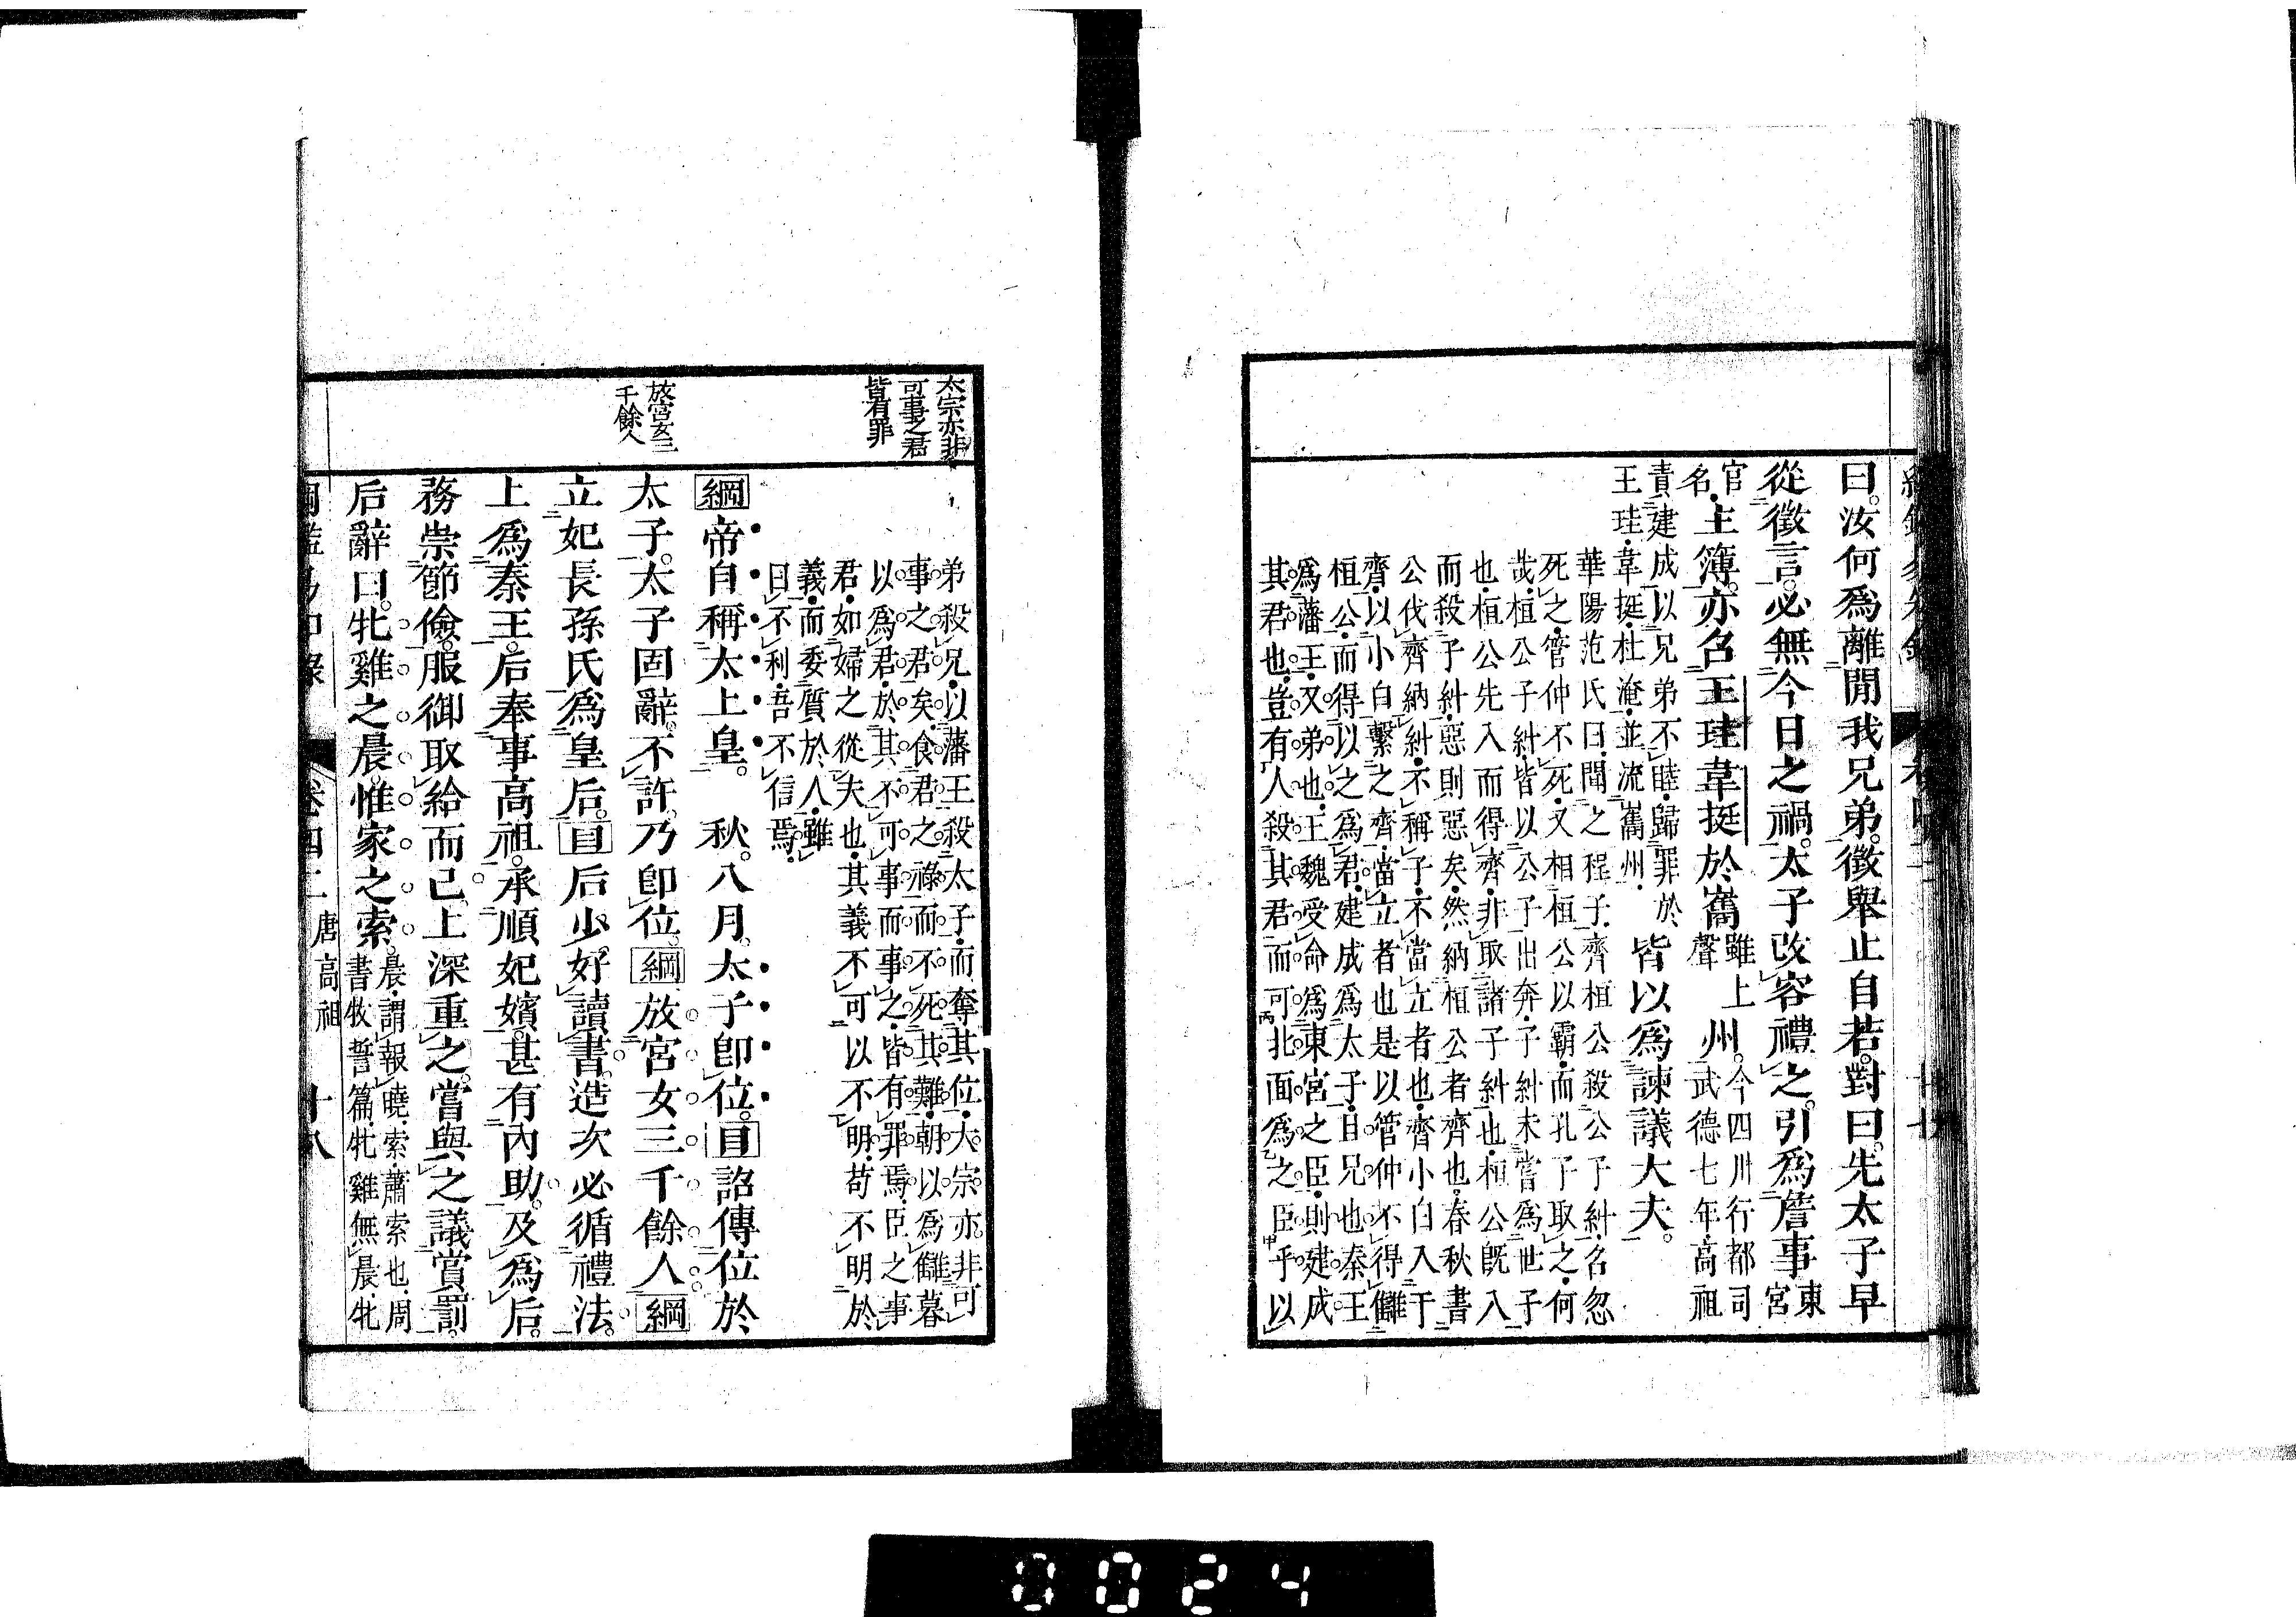 曰。汝何爲離閒我兄弟。徵舉止自若。對曰。先太子早
從徵言。必無今日之禍。太子改容禮之。引爲詹事東宮
官名。主簿。亦召王珪韋挺於巂雖上聲州。今四川行都司武德七年高祖
責建成以兄弟不睦歸罪於王珪韋挺杜淹並流巂州皆以爲諫議大夫。
華陽范氏曰聞之程子齊桓公殺公子糾召忽
死之管仲不死又相桓公以霸而孔子取之何
哉桓公子糾皆以公子出奔子糾未嘗爲世子
也桓公先入而得齊非取諸子糾也桓公旣入
而殺子糾惡則惡矣然納桓公者齊也春秋書
公伐齊納糾不稱子不當立者也齊小白入于
齊以小白繫之齊當立者也是以管仲不得讎
桓公而得以之爲君建成爲太子且兄也秦王
爲藩王又弟也王魏受命爲東宮之臣則建成
其君也豈有人殺其君而可北面爲之臣乎以
太宗亦非
可事之君
皆有罪
弟殺兄以藩王殺太子而奪其位太宗亦非可
事之君矣食君之祿而不死其難朝以爲讎暮
以爲君於其不可事而事之皆有罪焉臣之事
君如婦之從夫也其義不可以不明苟不明於
義而委質於人雖
曰不利吾不信焉
綱帝自稱太上皇。秋。八月。太子卽位。目詔傳位於
放宮女三
千餘人
太子。太子固辭。不許。乃卽位。綱放宮女三千餘人綱
立妃長孫氏爲皇后。目后少。好讀書。造次必循禮法。
上爲秦王。后奉事高祖。承順妃嬪。甚有內助。及爲后。
務崇節儉。服御取給而已。上深重之。嘗與之議賞罰。
后辭曰。牝雞之晨。惟家之索。晨謂報曉索蕭索也周書牧誓篇牝雞無晨牝
卷四二 唐高祖 十八